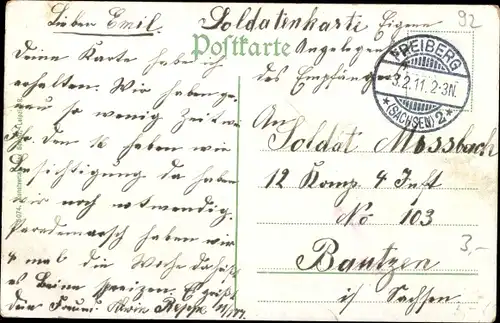 Lieben Emil.
Soldatenkarte Eigene
Angelegen
des Empfängers
Postkarte
92
FREIBERG
3.2.11. 2-3N.
*(SACHSEN) 2*
Deine Karte habe ich
erhalten. Wir haben ge-
nau so wenig Zeit wie
Ihr den 12 haben wir
Besichtigung da haben
wir noch notwendig.
Parademarsch haben wir
4 mal die Woche da heißt
es Beine spreizen. Es grüßt
dein Freund.
An
Soldat Mossbach
12 Komp. 4 Inft
No 103
Bautzen
i/ Sachsen
3,-